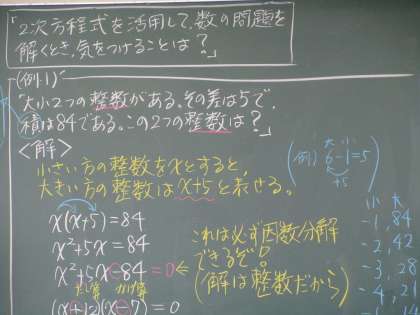 「2次方程式を活用して、数の問題を
解くとき、気をつけることは?」
(例1)
「大小2つの整数がある。その差は5で、
積は84である。この2つの整数は?」
<解>
小さい方の整数をxとすると、
大きい方の整数はx+5と表せる。
(例) 6-1=5
大 小
+5
x(x+5)=84
x²+5x=84
x²+5x-84=0
たし算 かけ算
(x+12)(x-7)=0
これは必ず因数分解
できるぞ!!
(解は整数だから)
小 大
-1, 84
-2, 42
-3, 28
-4, 21